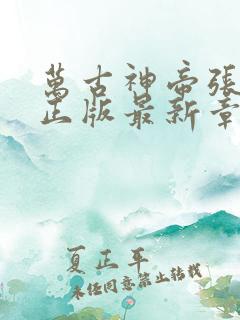 萬古神帝張
正版最新章
夏正年
未经同意禁止转载